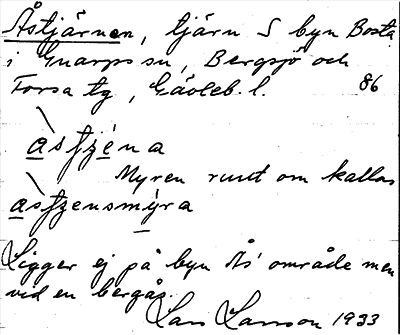 Åstjärnen, tjärn S byn Bosta
i Gnarps sn, Bergsjö och
Forsa tg, Gävleb. l. 86
àsʃʒéna
Myren runt om kallas
àsʃʒensmýra
Ligger ej på byn Ås' område men
vid en bergås.
Lars Larsson 1933